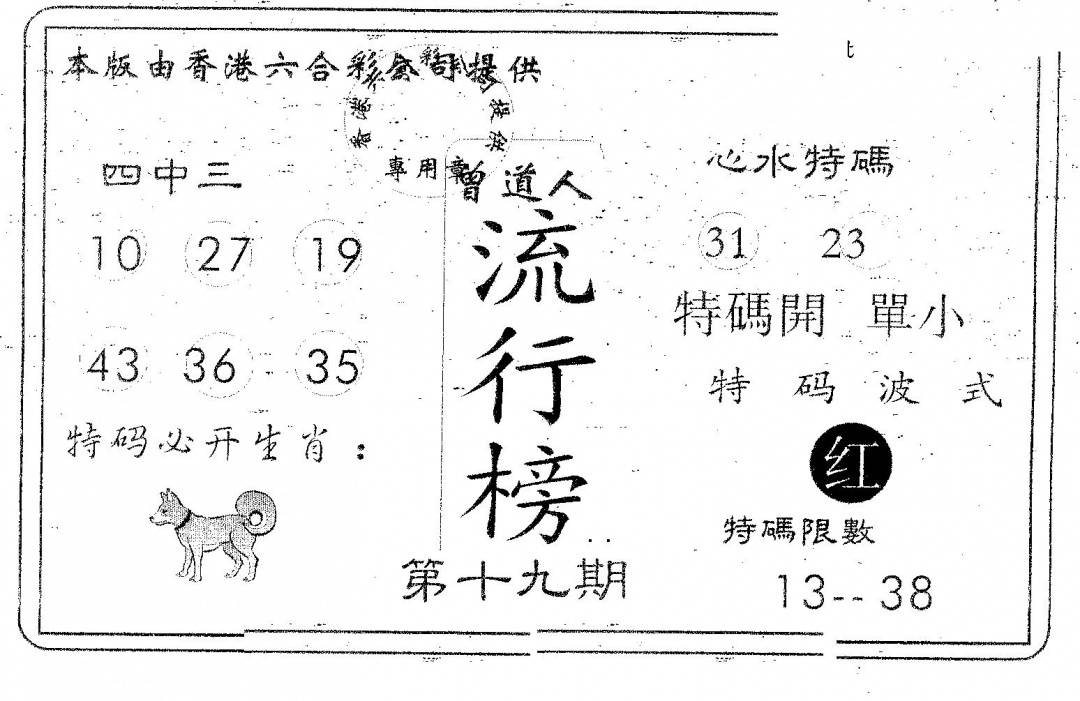 本版由香港六合彩公司提供
香港 彩 提供
專用章
四中三
10 27 19
43 36 35
特码必开生肖：
曾道人
流行榜
第十九期
心水特碼
31 23
特碼開 單小
特码波式
红
特碼限數
13--38